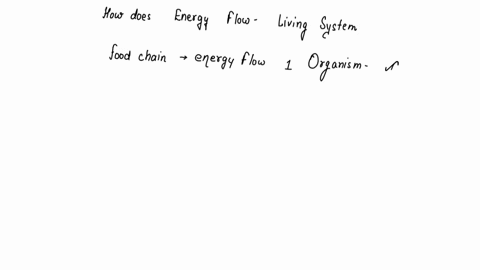 How does Energy flow - Living System
food chain → energy flow 1 Organism -